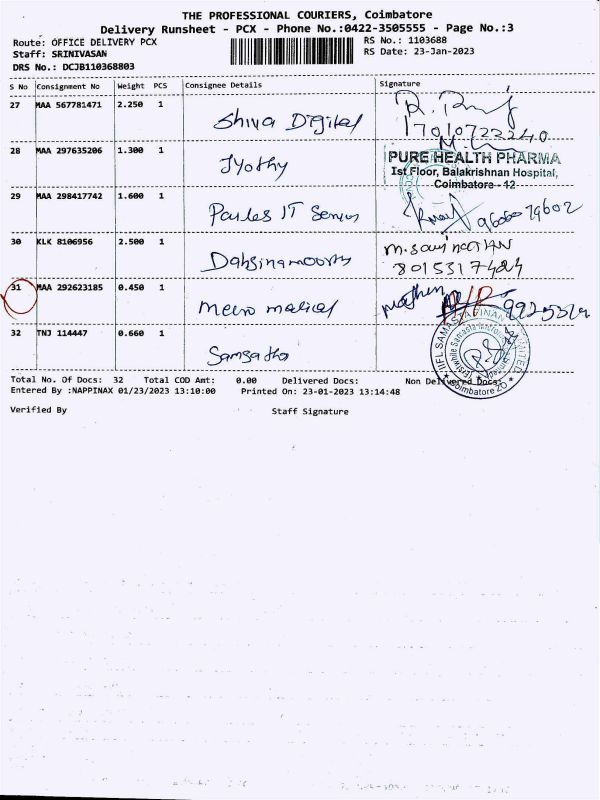 THE PROFESSIONAL COURIERS, Coimbatore
Delivery Runsheet - PCX - Phone No.:0422-3505555 - Page No.:3
Route: OFFICE DELIVERY PCX
RS No.: 1103688
Staff: SRINIVASAN
RS Date: 23-Jan-2023
DRS No.: DCJB110368803
S No Consignment No Weight PCS Consignee Details Signature
27 MAA 567781471 2.250 1 Shiva Digital
28 MAA 297635206 1.300 1 Jyothy
PURE HEALTH PHARMA
Ist Floor, Balakrishnan Hospital,
Coimbatore - 12
29 MAA 298417742 1.600 1
30 KLK 8106956 2.500 1
8015317424
31 MAA 292623185 0.450 1
32 TNJ 114447 0.660 1
IIFL SAMASTA FINANCE LIMITED
Coimbatore ZO
Total No. Of Docs: 32 Total COD Amt: 0.00 Delivered Docs: Non Delivered Docs:
Entered By :NAPPINAX 01/23/2023 13:10:00 Printed On: 23-01-2023 13:14:48
Verified By Staff Signature